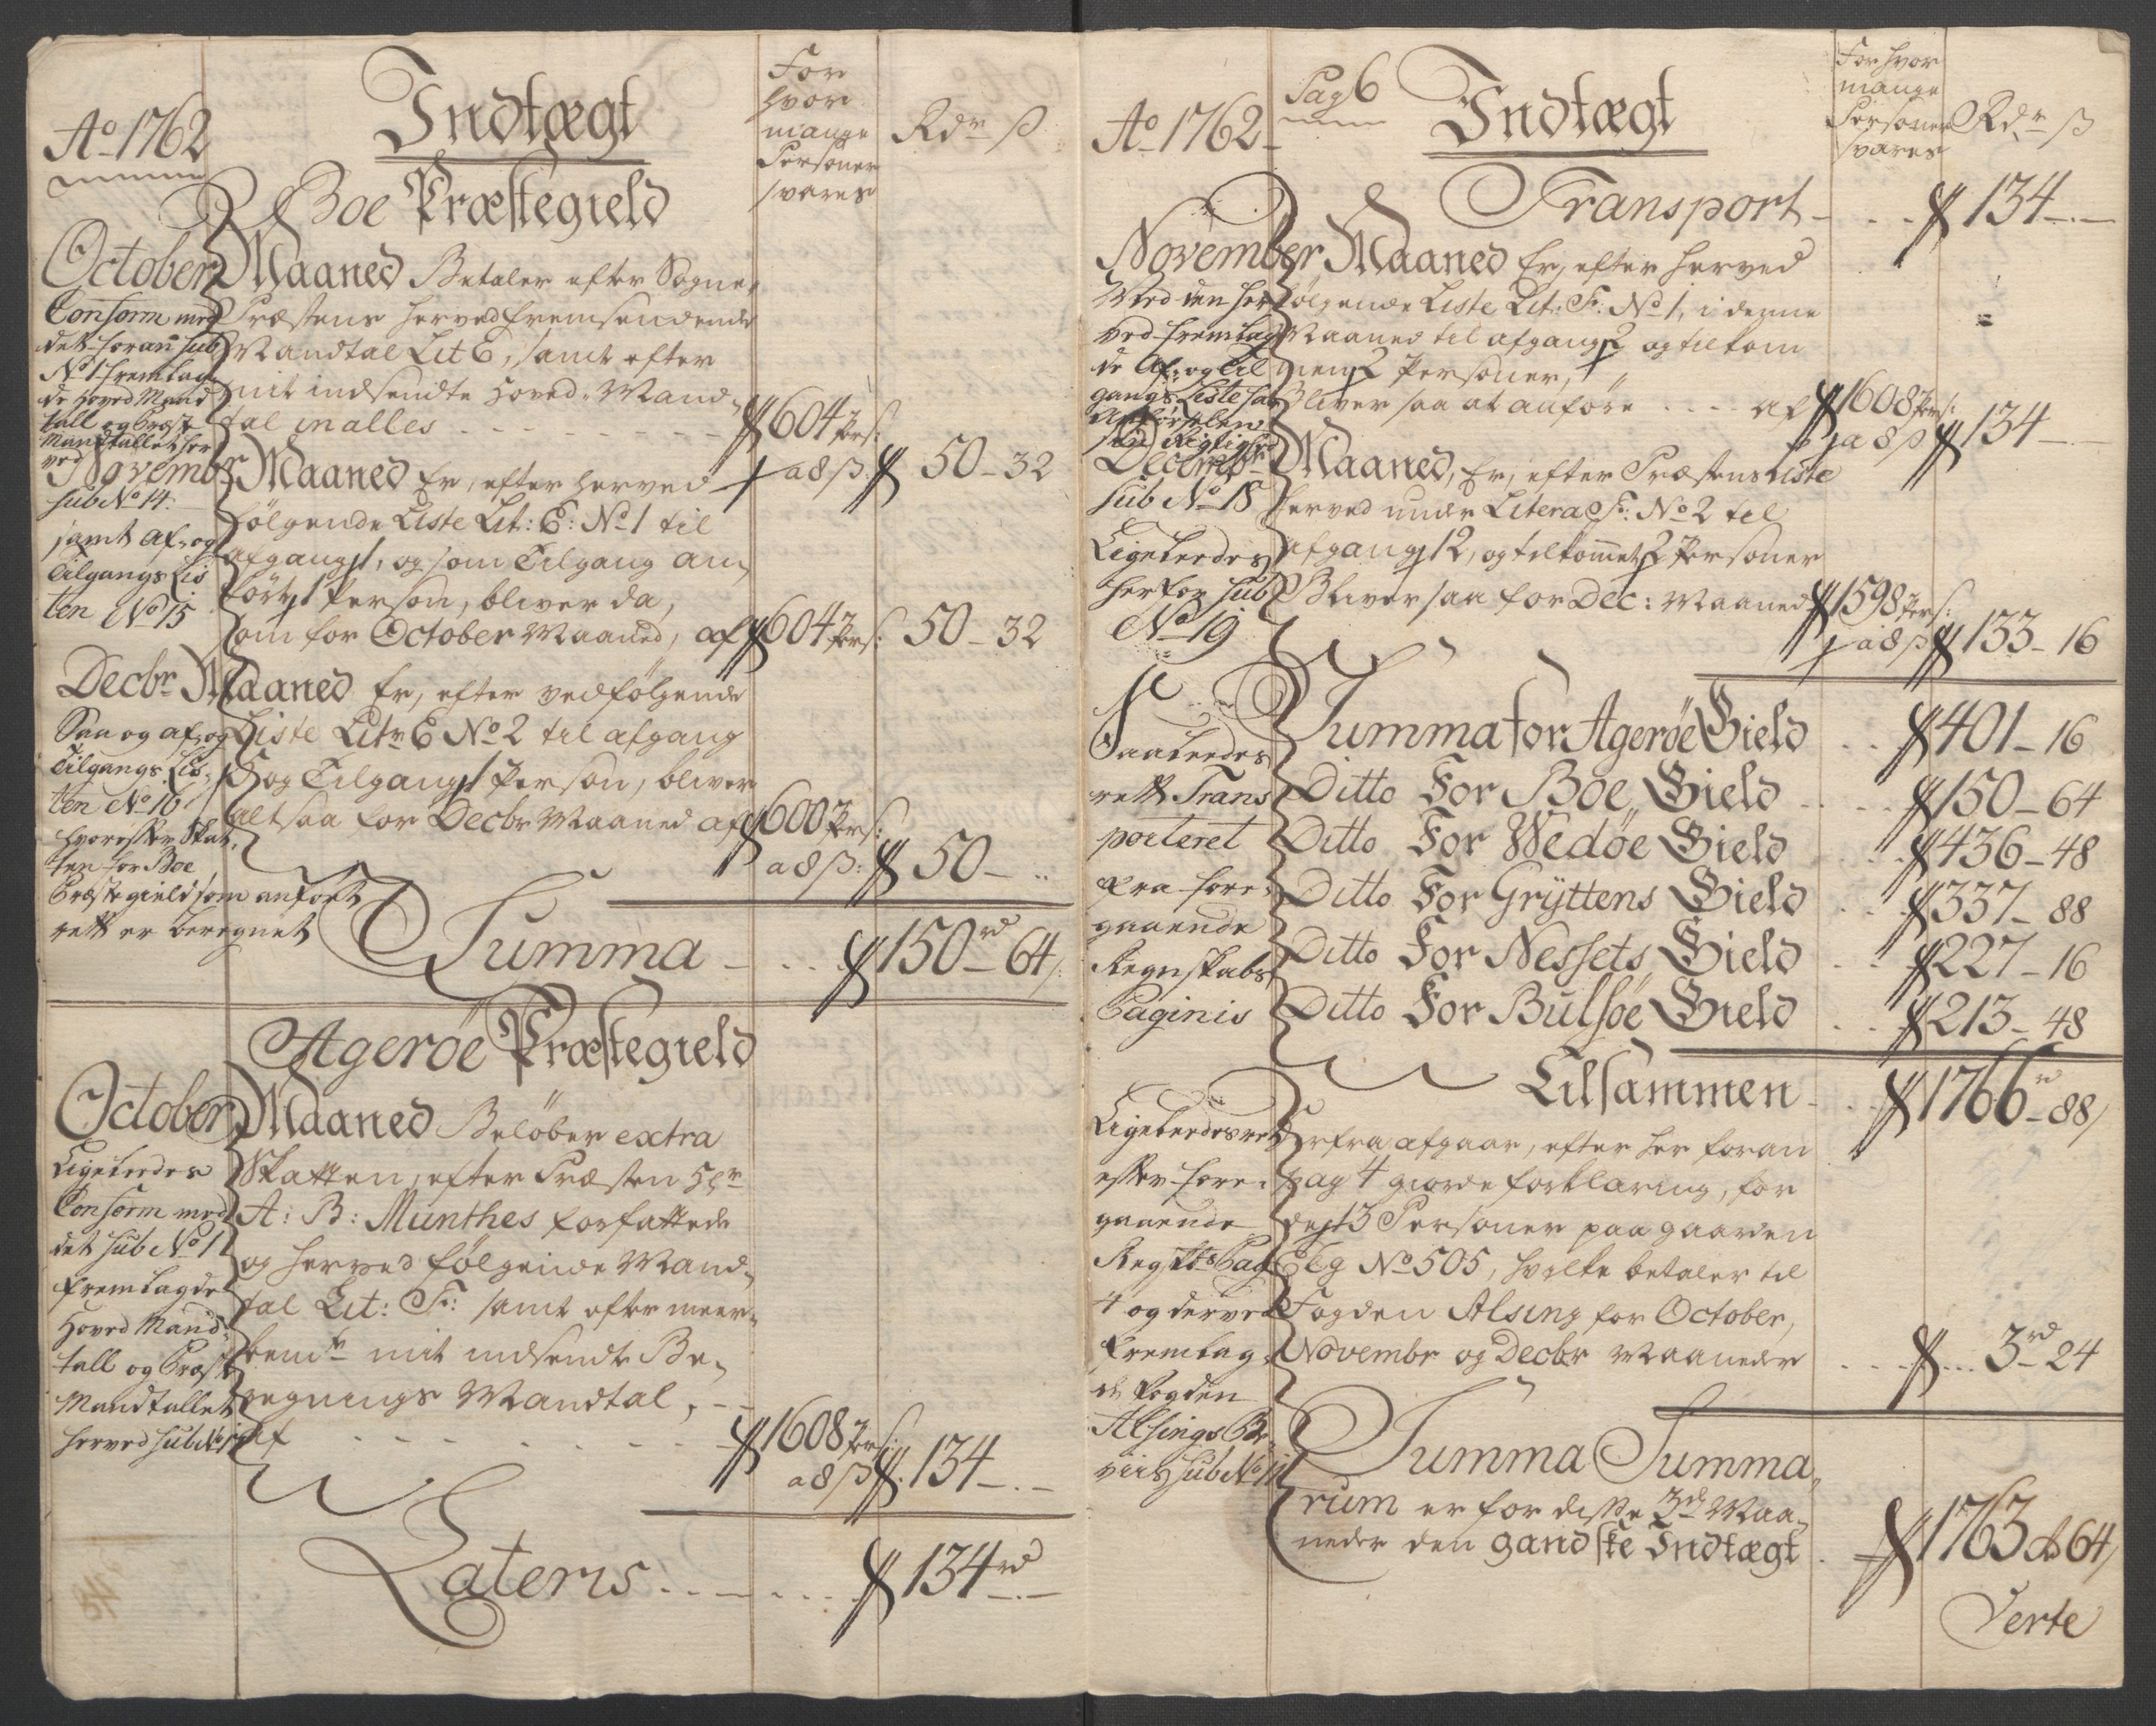 Ao 1762
Indtægt
For
hvor
mange
Personer
svares
Rdr ß
Boe Præstegield
October Maaned Betaler efter Sogne-
Præstens herved fremsendende
Mandtal Lit E, samt efter
mit indsendte Hoved-Mand-
tal in alles 604 Pers:
a 8 ß 50-32
Conform med
det foran sub
No 1 fremlag-
de Hoved Mand
tall og Præste
Mandtallet her
ved
sub No 14.
samt Af- og
Tilgangs Lis
ten No 15
Novembr Maaned Er, efter herved
følgende Liste Lit: E: No 1 til
afgang 1, og som Tilgang an-
ført 1 Person, bliver da,
som for October Maaned, af 604 Pers: 50-32
Decbr Maaned Er, efter vedfølgende
Liste Litr E No 2 til afgang
5 og Tilgang 1 Person, bliver
altsaa for Decbr Maaned af 600 Pers:
a 8 ß: 50-
Saa og af- og
Tilgangs Lis-
ten No 16
hvorefter Skat-
ten for Boe
Præstegield som anført
rett er beregnet
Summa 150rd-64
Agerøe Præstegield
October Maaned Beløber extra
Skatten, efter Præsten Hr
A: B: Munthes forfattede
og herved følgende Mand-
tal Lit: F: samt efter meer-
bemte mit indsendte Be-
regnings Mandtal,
af 1608 Pers:
a 8 ß 134-
Ligeledes
Conform med
det sub No 1
fremlagde
Hoved Mand-
tall og Præste
Mandtallet
herved sub No 17
Lateris 134rd
Ao 1762
Pag 6
Indtægt
For hvor
mange
Personer
svares
Rdr ß
Transport 134-
November Maaned Er, efter herved
følgende Liste Lit: F: No 1, i denne
Maaned til afgang 2 og tilkom
men 2 Personer,
Bliver saa at anføre af 1608 Pers:
a 8 ß 134-
Med den her
ved fremlag
de Af- og Til
gangs Liste
sub No 18
Decembr Maaned, Er, efter Præstens Liste
herved under Litera F: No 2 til
afgang 12, og tilkommet 2 Personer
Bliver saa for Dec: Maaned 1598 Pers:
a 8 ß 133-16
Ligeledes
herfor sub
No 19
Summa for Agerøe Gield 401-16
Ditto For Boe Gield 150-64
Ditto For Wedøe Gield 436-48
Ditto For Grÿttens Gield 337-88
Ditto For Nessets Gield 227-16
Ditto For Bulsøe Gield 213-48
Saaledes
rett Trans
porteret
fra fore-
gaaende
Regnskabs
Paginis
Tilsammen 1766r-88
Herfra afgaar, efter her foran
pag 4 giorde forklaring, for
de 13 Personer paa gaarden
Elg No 505, hvilke betaler til
Fogden Alsing for October,
Novembr og Decbr Maaneder 3rd-24
Ligeledes rett
efter fore-
gaaende
Regsk: Pag
4 og derved
fremlag-
de Fogden
Alsings Be-
viis sub No 11
Summa Summa-
rum er for disse 3de Maa-
neder den gandske Indtægt 1763 rd 64
Verte